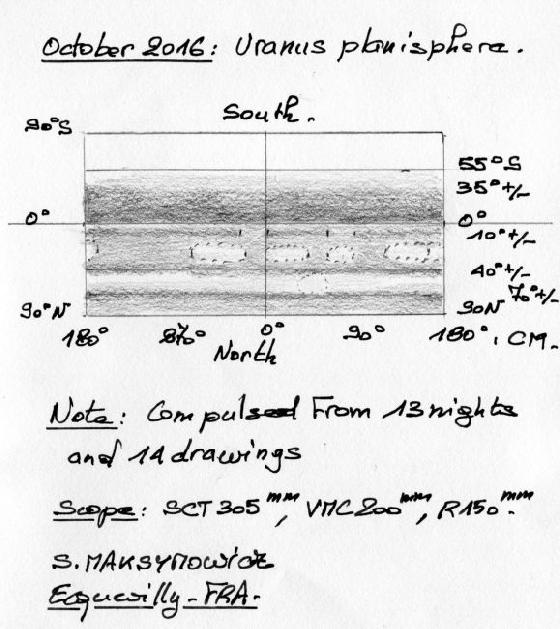 October 2016: Uranus planisphere.
South.
90°S
55°S
35°+/-
0°
0°
10°+/-
40°+/-
70°+/-
90°N
90N
180° 270° 0° 90° 180°. CM.
North
Note: Compulsed From 13 nights
and 14 drawings
Scope: SCT 305mm, VMC200mm, R150mm.
S. MAKSYMOWICZ
Ecquevilly - FRA.